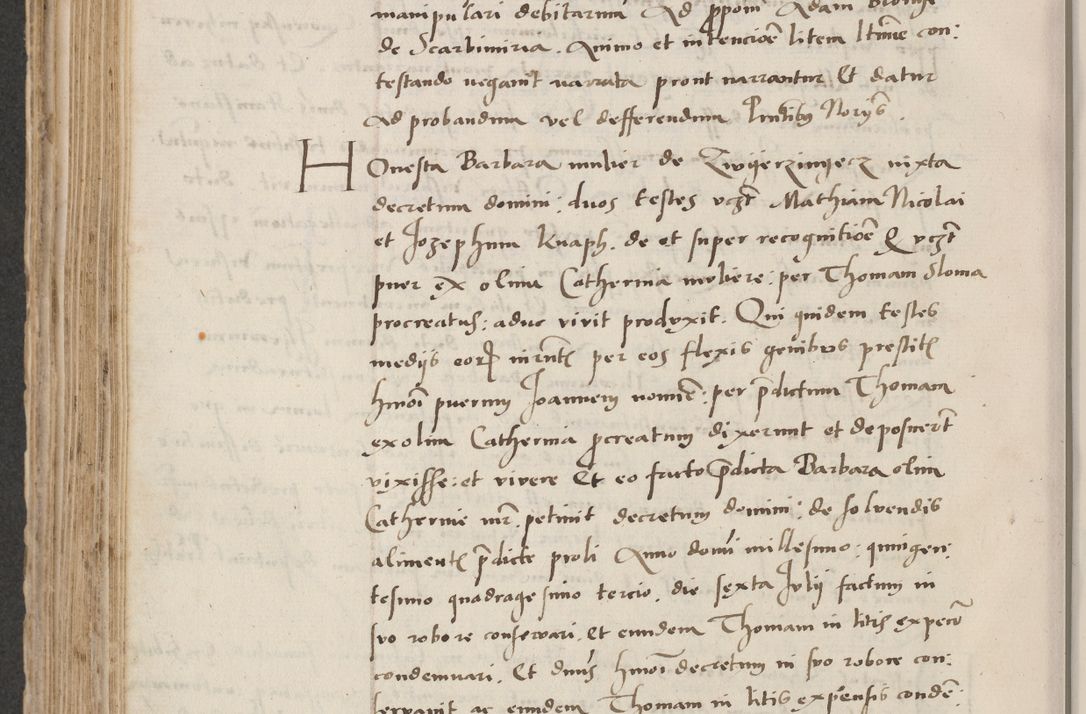 manipulari debitarum Ad ppom Adam
de Scarbimiria. Animo et intencioe litem ltime con:
testando negavit narrata pront narrantur Et datur
Ad probandum vel defferendum Pntibus Norijs.
Honesta Barbara mulier de iuxta
decretum domini: duos testes vczt Mathiam Nicolai
et Jozephum Knaph. de et super recognitioe Q vczt
puer ex olim Catherina muliere: per Thomam Sloma
procreatus: aduc vivit produxit. Qui quidem testes
medijs eor iurnts per eos flexis genibus prestits
hmoi puerum Joannem nomine: per pdictum Thomam
ex olim Catherina pcreatum dixerunt et deposuerut
vixisse: et vivere Et eo facto pdicta Barbara olim
Catherine mr. petiuit decretum domini: de solvendis
aliments pdicte proli Anno domi millesimo: quingen:
tesimo quadragesimo tercio. die sexta Julij factum in
suo robore conservari. Et eundem Thomam in litis expen
condemnari. Et dnus hmoi decretum in suo robore con:
servavit ac eundem Thomam in litis expensis conden: